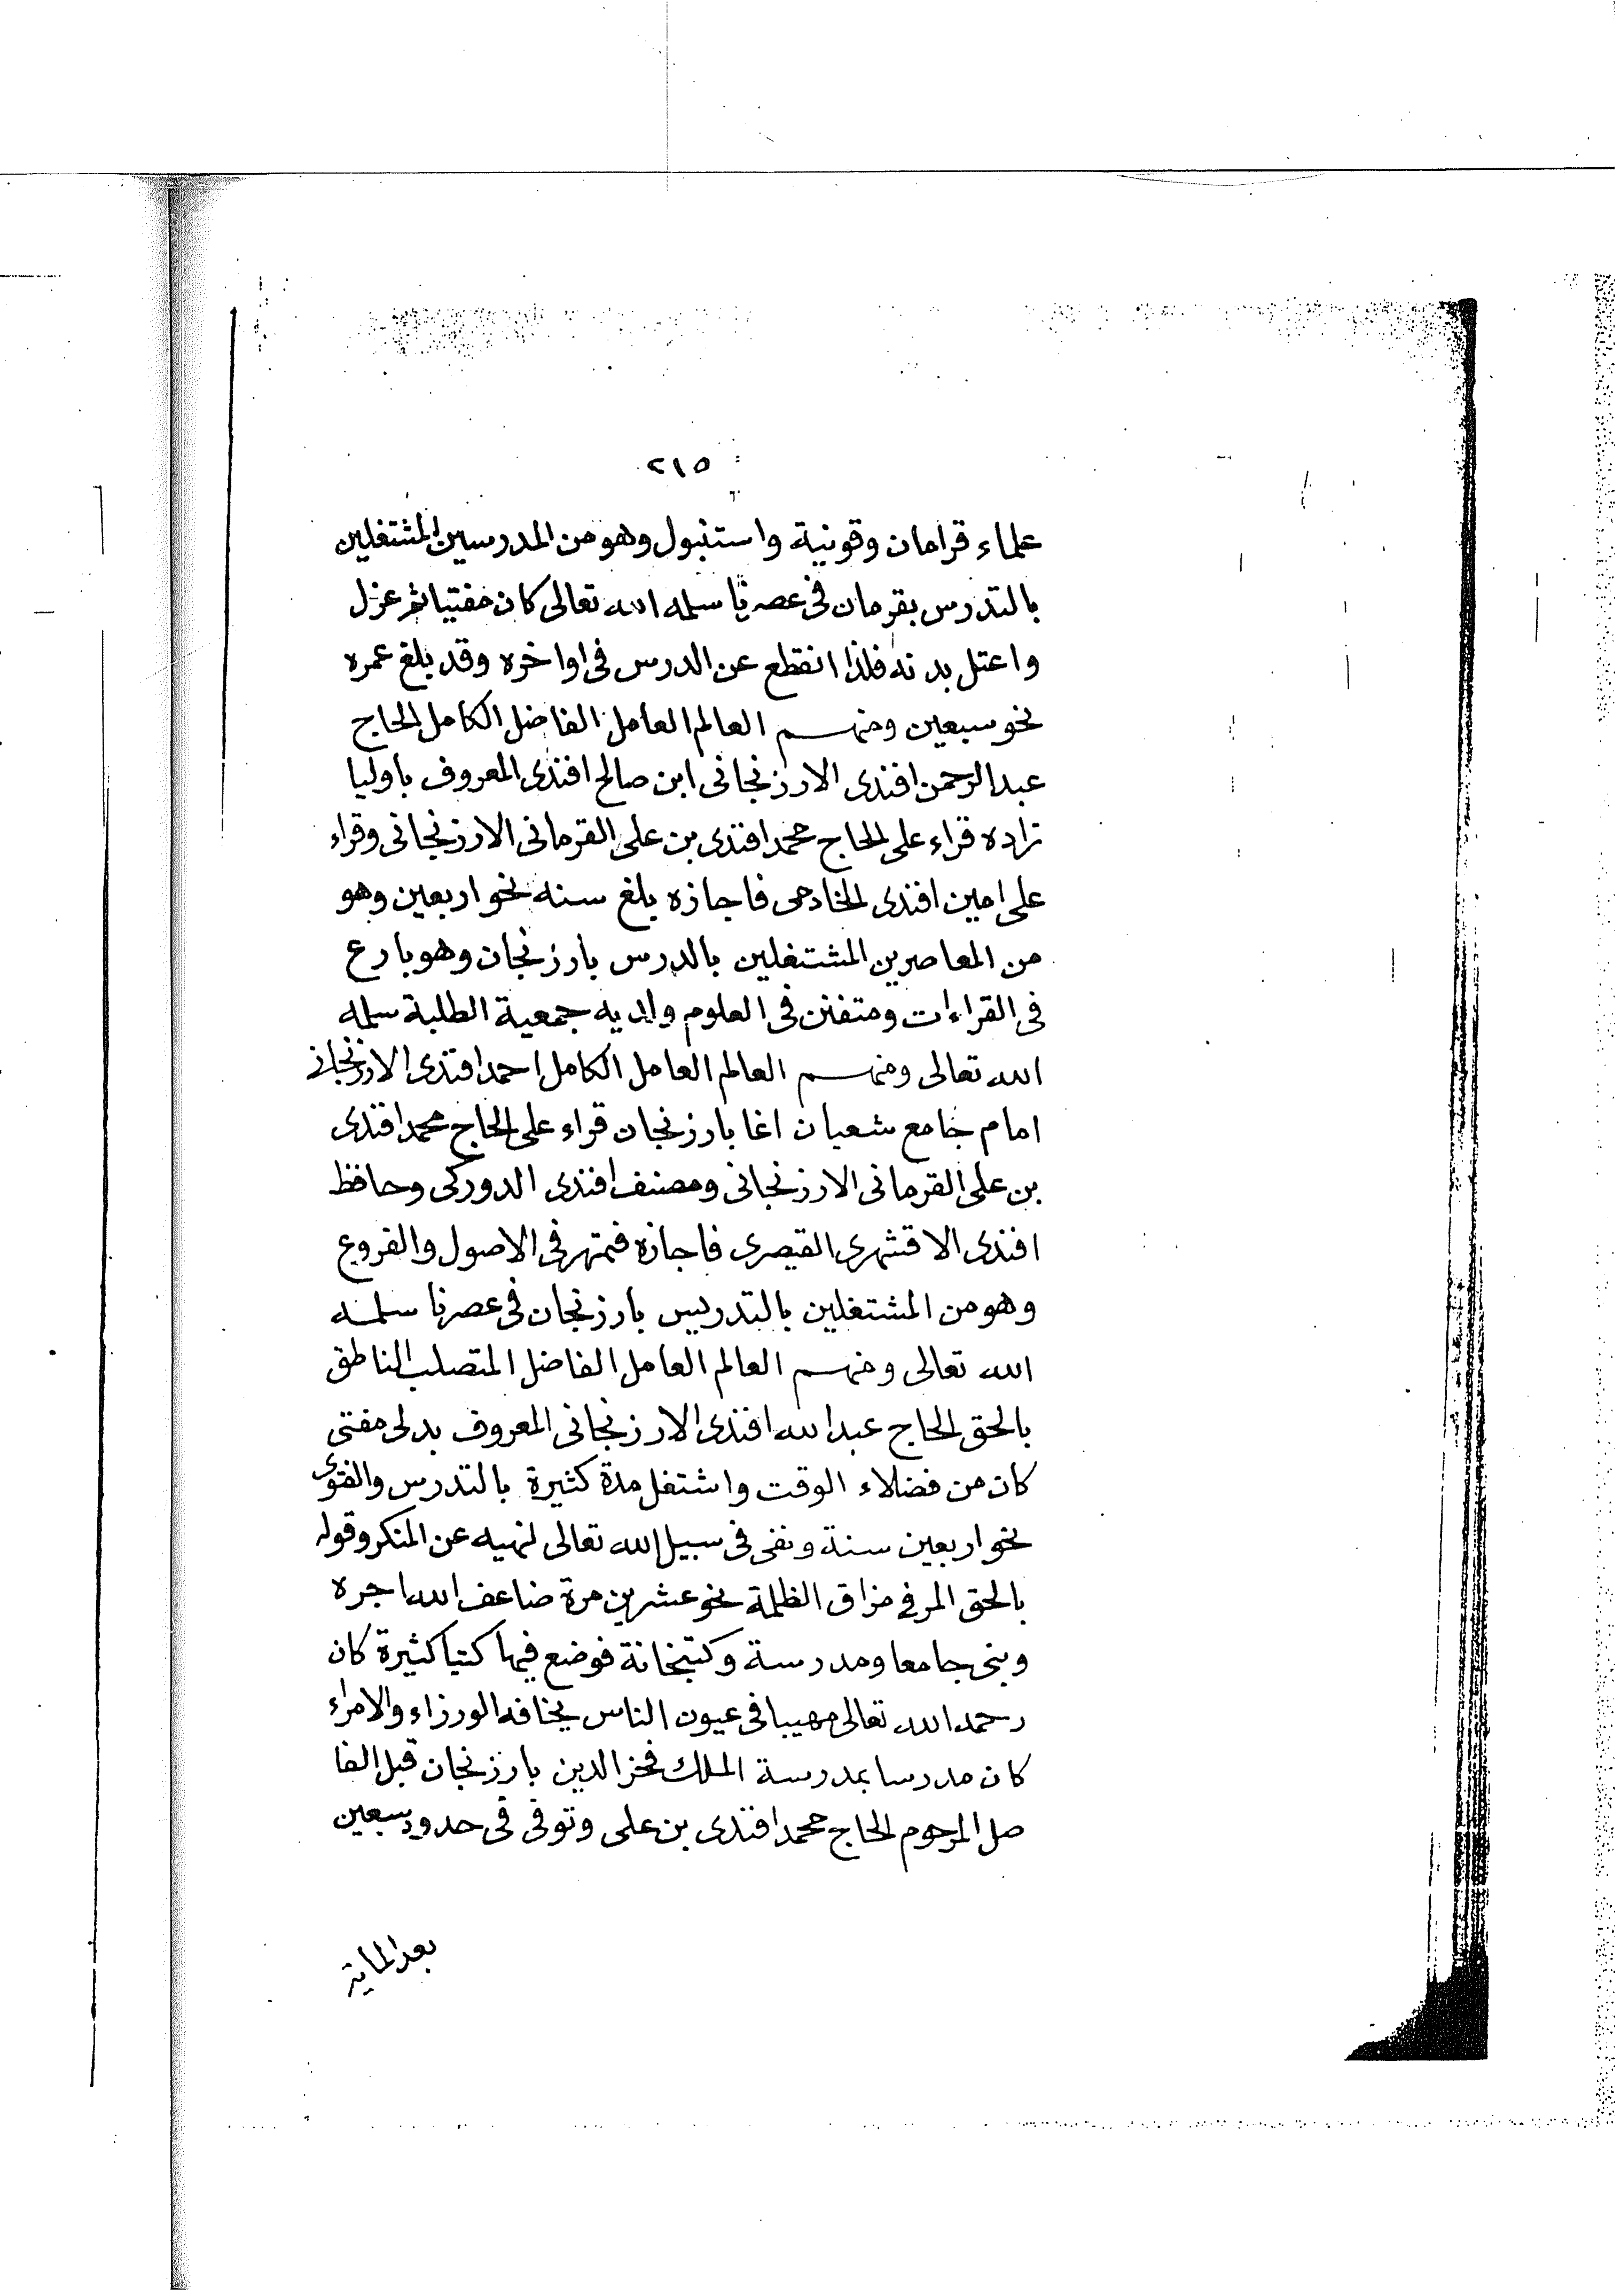 ٢١٥
علماء قرامان وقونية واستنبول وهو من المدرسين المشتغلين
بالتدرس بقرمان فى عصرنا سلمه الله تعالى كان مفتيا ثم عزل
واعتل بدنه فلذا انقطع عن الدرس فى اواخره وقد بلغ عمره
نحو سبعين ومنهم العالم العامل الفاضل الكامل الحاج
عبد الرحمن افندى الارزنجانى ابن صالح افندى المعروف باوليا
زاده قراء على الحاج محمد افندى بن على القرمانى الارزنجانى وقراء
على امين افندى الخادمى فاجازه بلغ سنه نحو اربعين وهو
من المعاصرين المشتغلين بالدرس بارزنجان وهو بارع
فى القراءات ومتفنن فى العلوم ولديه جمعية الطلبة سلمه
الله تعالى ومنهم العالم العامل الكامل احمد افندى الارزنجانى
امام جامع شعبان اغا بارزنجان قراء على الحاج محمد افندى
بن على القرمانى الارزنجانى ومصنف افندى الدوركى وحافظ
افندى الاقشهرى القيصرى فاجازه فتمهر فى الاصول والفروع
وهو من المشتغلين بالتدريس بارزنجان فى عصرنا سلمه
الله تعالى ومنهم العالم العامل الفاضل المتصلب الناطق
بالحق الحاج عبد الله افندى الارزنجانى المعروف بدلى مفتى
كان من فضلاء الوقت واشتغل مدة كثيرة بالتدرس والفتوى
نحو اربعين سنة ونفى فى سبيل الله تعالى لنهيه عن المنكر وقوله
بالحق المر فى مزاق الظلمة نحو عشرين مرة ضاعف الله اجره
وبنى جامعا ومدرسة وكتبخانة فوضع فيها كتبا كثيرة كان
رحمه الله تعالى مهيبا فى عيون الناس يخافه الوزراء والامراء
كان مدرسا بمدرسة الملك فخر الدين بارزنجان قبل الفا
صل المرحوم الحاج محمد افندى بن على وتوفى فى حدود سبعين
بعد المأية